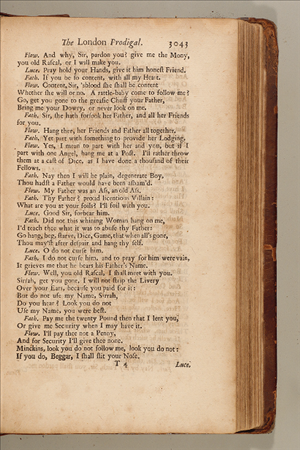 The London Prodigal. 3043
Flow. And why, Sir, pardon you! give me the Mony,
you old Rascal, or I will make you.
Luce. Pray hold your Hands, give it him honest Friend.
Fath. If you be so content, with all my Heart.
Flow. Content, Sir, 'sblood she shall be content
Whether she will or no. A rattle-baby come to follow me!
Go, get you gone to the greasie Chuff your Father,
Bring me your Dowry, or never look on me.
Fath. Sir, she hath forsook her Father, and all her Friends
for you.
Flow. Hang thee, her Friends and Father all together.
Fath. Yet part with something to provide her Lodging.
Flow. Yes, I mean to part with her and you, but if I
part with one Angel, hang me at a Post. I'll rather throw
them at a cast of Dice, as I have done a thousand of their
Fellows.
Fath. Nay then I will be plain, degenerate Boy,
Thou hadst a Father would have been asham'd.
Flow. My Father was an Ass, an old Ass.
Fath. Thy Father? proud licentious Villain:
What are you at your foils? I'll foil with you.
Luce. Good Sir, forbear him.
Fath. Did not this whining Woman hang on me,
I'd teach thee what it was to abuse thy Father:
Go hang, beg, starve, Dice, Game, that when all's gone,
Thou may'st after despair and hang thy self.
Luce. O do not curse him.
Fath. I do not curse him, and to pray for him were vain,
It grieves me that he bears his Father's Name.
Flow. Well, you old Rascal, I shall meet with you.
Sirrah, get you gone, I will not strip the Livery
Over your Ears, because you paid for it:
But do not use my Name, Sirrah,
Do you hear? Look you do not
Use my Name, you were best.
Fath. Pay me the twenty Pound then that I lent you,
Or give me Security when I may have it.
Flow. I'll pay thee not a Penny,
And for Security I'll give thee none.
Minckins, look you do not follow me, look you do not:
If you do, Beggar, I shall slit your Nose.
T 4 Luce.